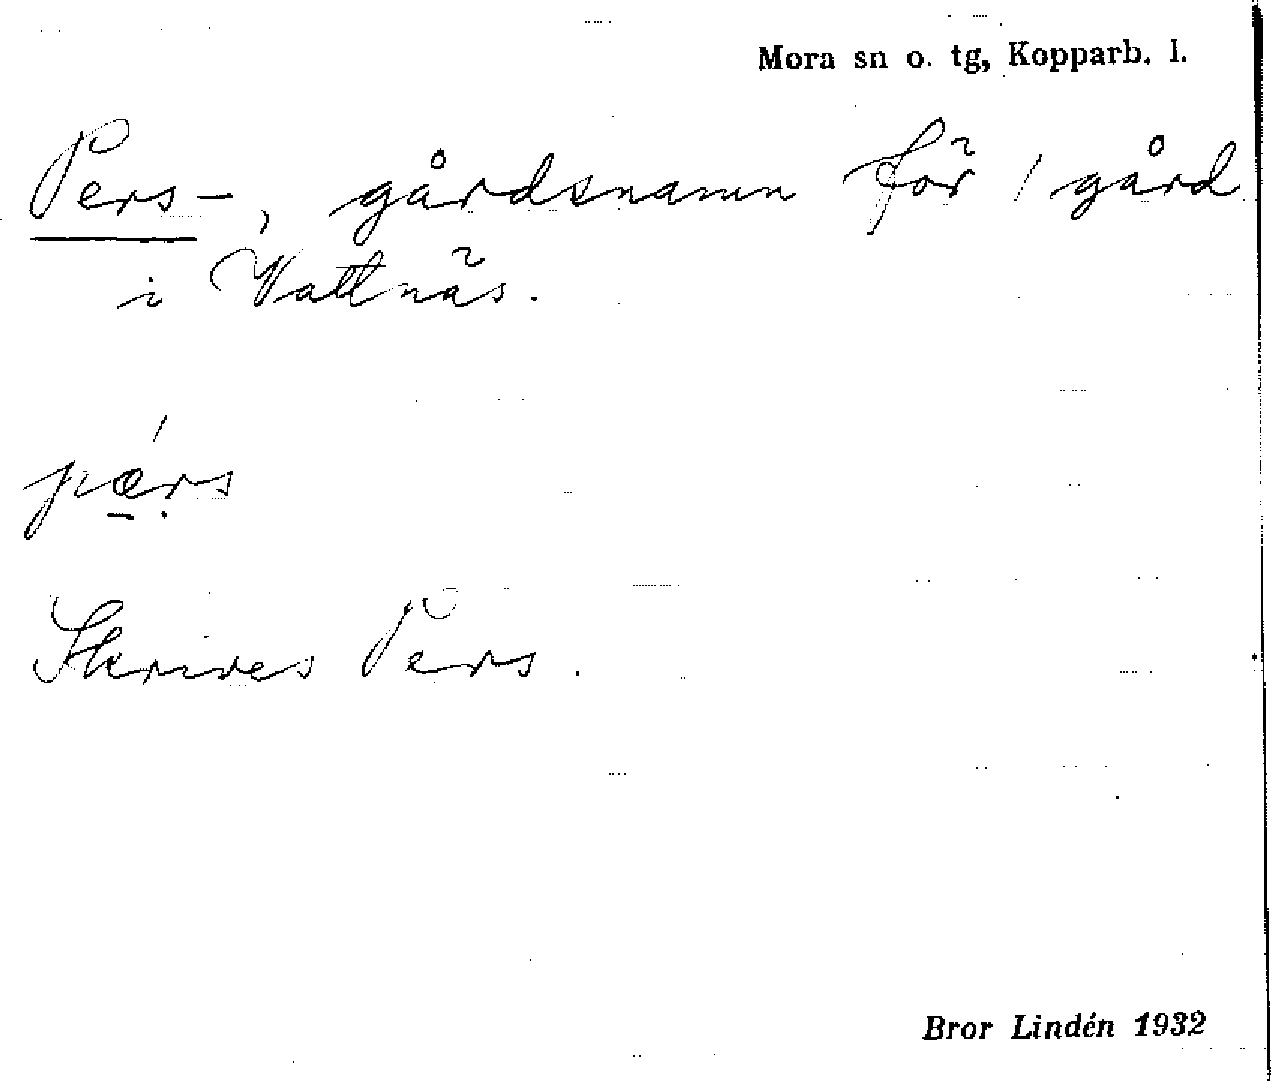 Mora sn o. tg, Kopparb. l.
Pers-, gårdsnamn för 1 gård
i Vattnäs.
pǽ̱ṛs
Skrives Pers.
Bror Lindén 1932